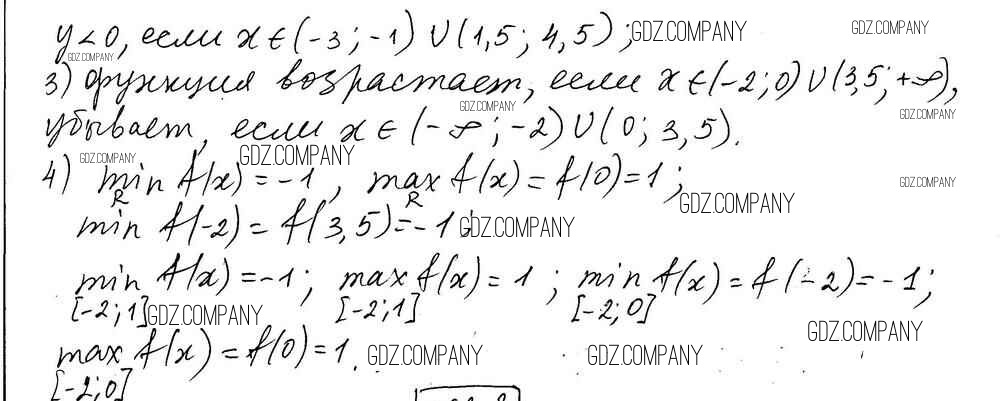 y < 0, если x ∈ (-3; -1) ∪ (1,5; 4,5); GDZ.COMPANY GDZ.COMPANY
GDZ.COMPANY
3) функция возрастает, если x ∈ (-2; 0) ∪ (3,5; +∞),
GDZ.COMPANY GDZ.COMPANY
убывает, если x ∈ (-∞; -2) ∪ (0; 3,5).
GDZ.COMPANY GDZ.COMPANY
4) min f(x) = -1, max f(x) = f(0) = 1; GDZ.COMPANY
R R GDZ.COMPANY
min f(-2) = f(3,5) = -1. GDZ.COMPANY
min f(x) = -1; max f(x) = 1; min f(x) = f(-2) = -1;
[-2; 1] GDZ.COMPANY [-2; 1] [-2; 0] GDZ.COMPANY
max f(x) = f(0) = 1. GDZ.COMPANY GDZ.COMPANY
[-2; 0]